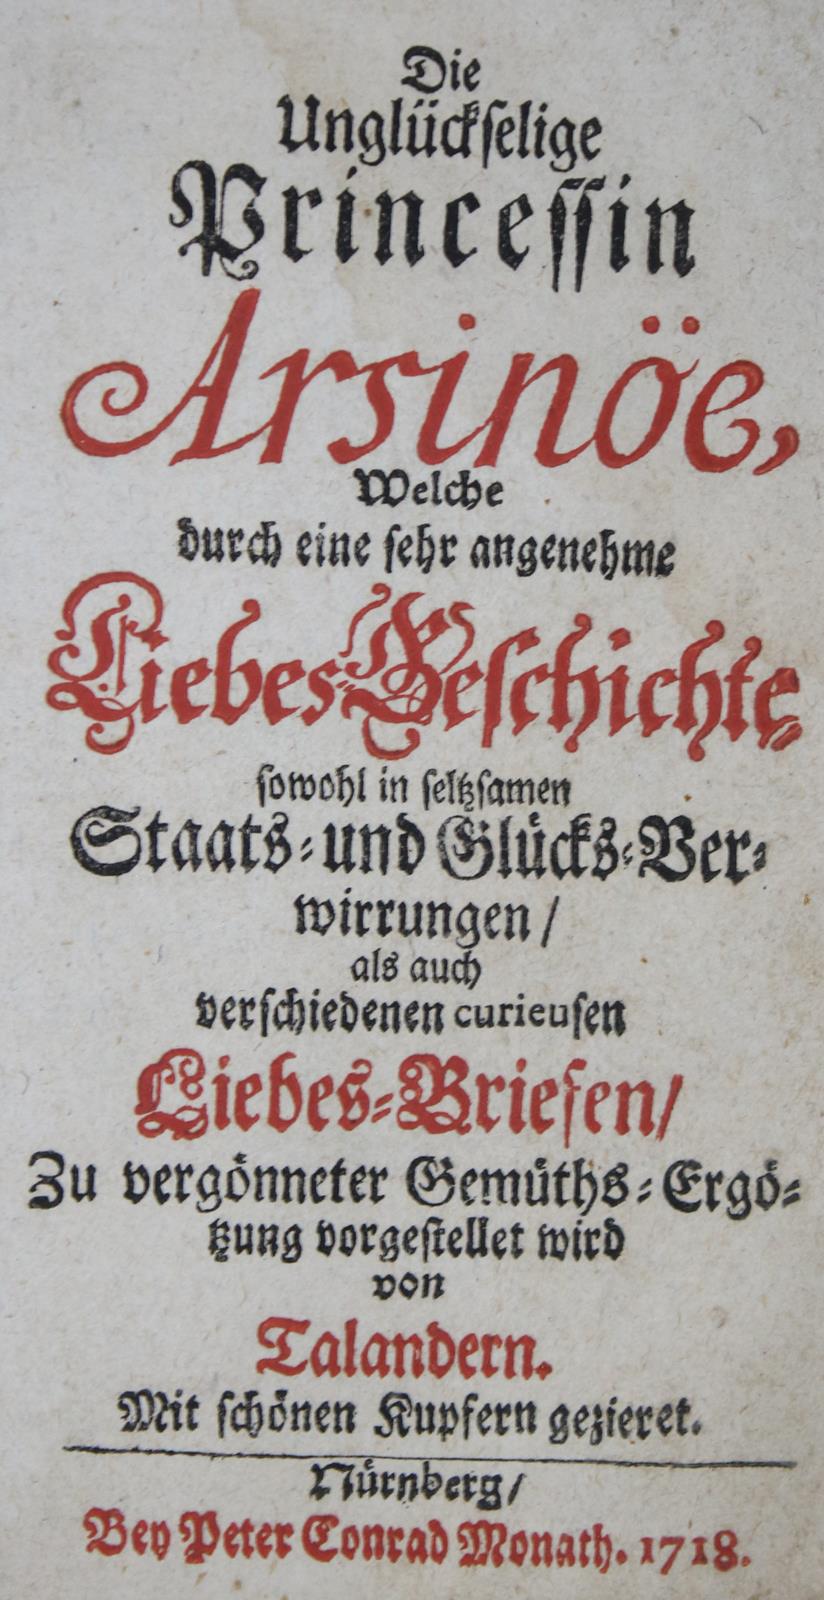 Die
Unglückſelige
Princeſſin
Arsinöe,
Welche
durch eine ſehr angenehme
Liebes-Geſchichte
ſowohl in ſeltzſamen
Staats- und Glücks-Ver-
wirrungen /
als auch
verſchiedenen curieuſen
Liebes-Briefen /
Zu vergönneter Gemüths-Ergö-
tzung vorgeſtellet wird
von
Talandern.
Mit ſchönen Kupfern gezieret.
Nürnberg /
Bey Peter Conrad Monath. 1718.